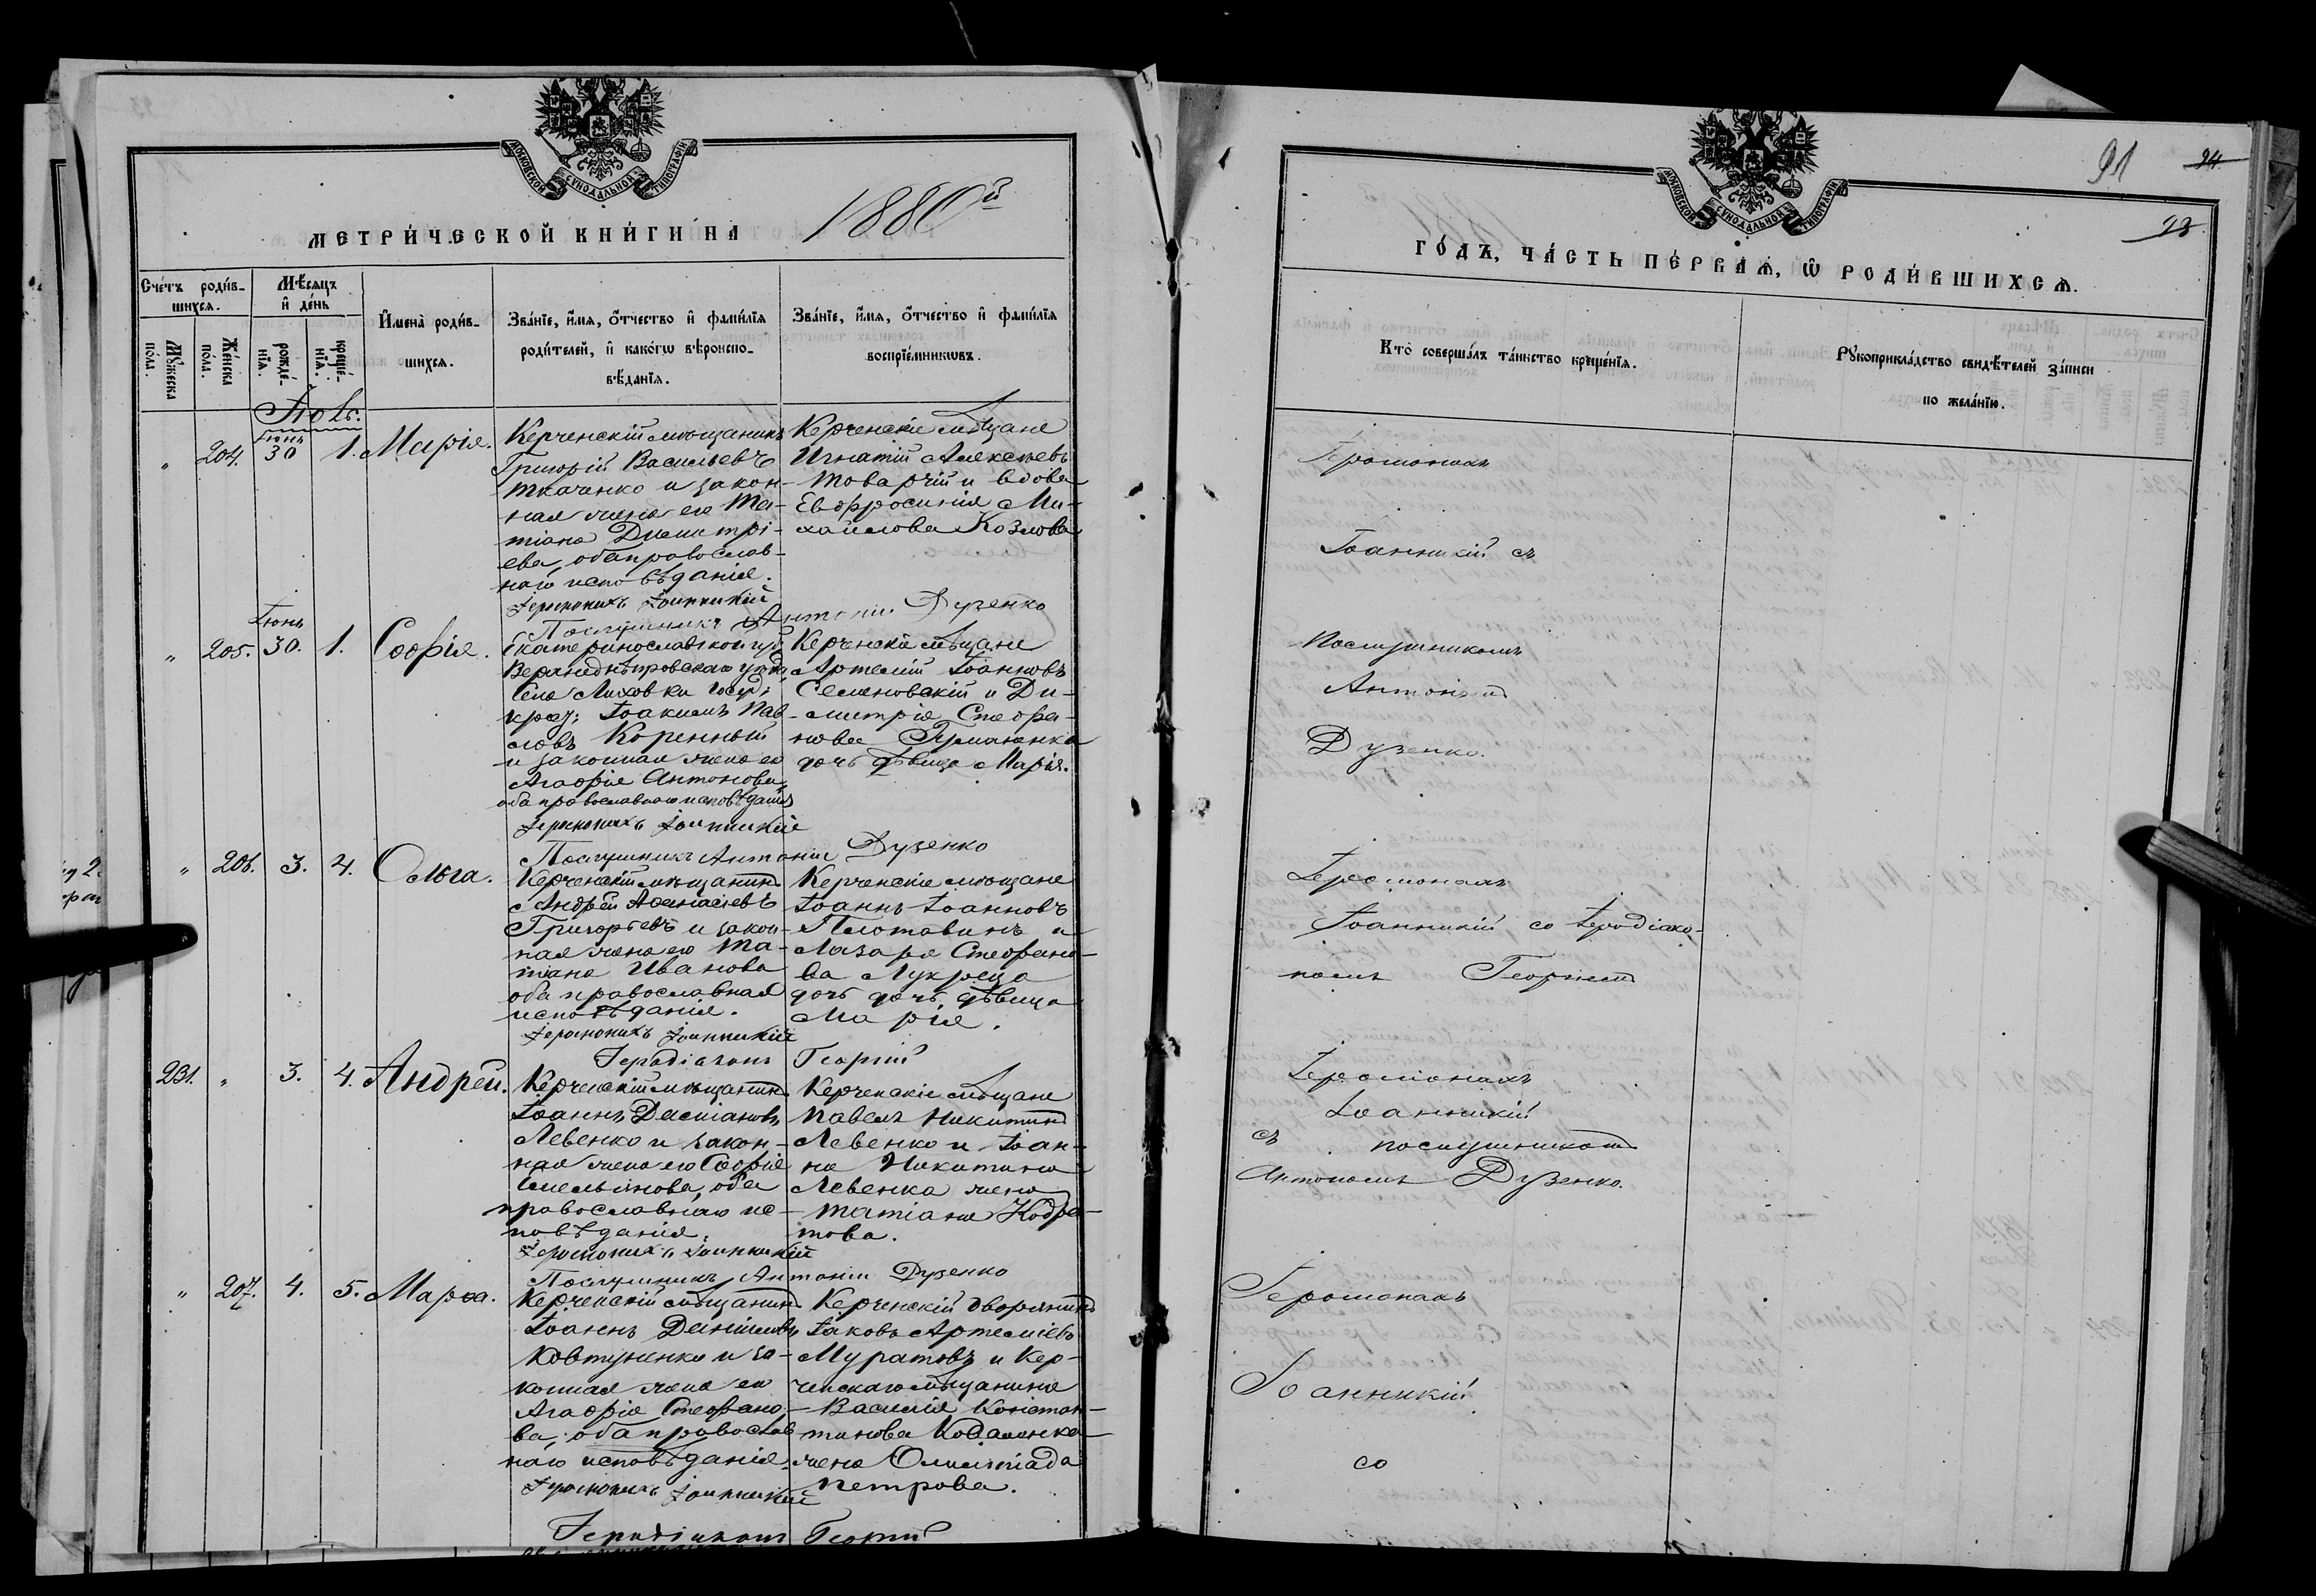 МОСКОВСКОЙ СѴНОДАЛЬНОЙ ТИПОГРАФІИ
МЕТРИ́ЧЕСКОЙ КНИ́ГИ НА 1880й
Сче́тъ роди́в-
шихся.
Мѣ́сяцъ
и҆ де́нь
Мꙋ́жеска
по́ла.
Же́нска
по́ла.
рожде́-
нїя.
креще́-
нїя.
И҆мена̀ роди́в-
шихся.
Зва́нїе, и҆́мя, ѻ҆́тчество и҆ фами́лїя
роди́телей, и҆ како́гѡ вѣроиспо-
вѣ́данїя.
Зва́нїе, и҆́мя, ѻ҆́тчество и҆ фами́лїя
воспрїе́мникѡвъ.
Іюль.
" 204. Іюнь 30 1. Марія.
Керченскій мѣщанинъ
Григорій Васильевъ
Ткаченко и закон-
ная жена его Та-
тіана Димитрі-
ева, оба православ-
наго исповѣданія.
Керченскіе мѣщане
Игнатій Алексѣевъ
Товарчій и вдова
Евфросинія Ми-
хайлова Козлова
Іеромонахъ Іоанникій
Послушникъ Антоній Дузенко
" 205. Іюнь 30. 1. Софія.
Екатеринославской губ.
Верхнеднѣпровскаго уѣзда
села Лиховки госуд:
крест: Іоакимъ Пав-
ловъ Коренный
и законная жена его
Агафія Антонова,
оба православнаго исповѣданія
Керченскіе мѣщане
Артемій Іоанновъ
Семеновскій и Ди-
митрія Стефа-
нова
дочь дѣвица Марія.
Іеромонахъ Іоанникій
Послушникъ Антоній Дузенко
" 206. 3. 4. Ольга.
Керченскій мѣщанинъ
Андрей Аѳанасіевъ
Григорьевъ и закон-
ная жена его Та-
тіана Иванова
оба православнаго
исповѣданія.
Керченскіе мѣщане
Іоаннъ Іоанновъ
Плотавинъ и
Лазаря Стефано-
ва
дочь дочь, дѣвица
Марія.
Іеромонахъ Іоанникій
Іеродіаконъ Георгій
231. " 3. 4. Андрей.
Керченскій мѣщанинъ
Іоаннъ Даміановъ
Левенко и закон-
ная жена его Софія
Емельянова, оба
православнаго ис-
повѣданія.
Керченскіе мѣщане
Павелъ Никитинъ
Левенко и Іоан-
на Никитина
Левенка жена
Татіана Кодра-
това.
Іеромонахъ Іоанникій
Послушникъ Антоній Дузенко
" 207. 4. 5. Марѳа.
Керченскій мѣщанинъ
Іоаннъ Даніиловъ
Ковтуненко и за-
конная жена его
Агафія Стефано-
ва, оба православ
наго исповѣданія.
Керченскій дворянинъ
Іаковъ Артеміевъ
Муратовъ и Кер-
ченскаго мѣщанина
Василія Констан-
тинова
жена Олимпіада
Петрова.
Іеромонахъ Іоанникій
Іеродіаконъ Георгій
МОСКОВСКОЙ СѴНОДАЛЬНОЙ ТИПОГРАФІИ
91 94
93
ГО́ДЪ, ЧА́СТЬ ПЕ́РВАѦ, Ѡ҆ РОДИ́ВШИХСѦ.
Кто̀ соверша́лъ та́инство креще́нїя.
Рꙋкоприкла́дство свидѣ́телей за́писи
по жела́нїю.
Іеромонахъ
Іоанникій съ
Послушникомъ
Антоніемъ
Дузенко.
Іеромонахъ
Іоанникій со Іеродіако-
номъ Георгіемъ
Іеромонахъ
Іоанникій
съ послушникомъ
Антоніемъ Дузенко.
Іеромонахъ
Іоанникій
со